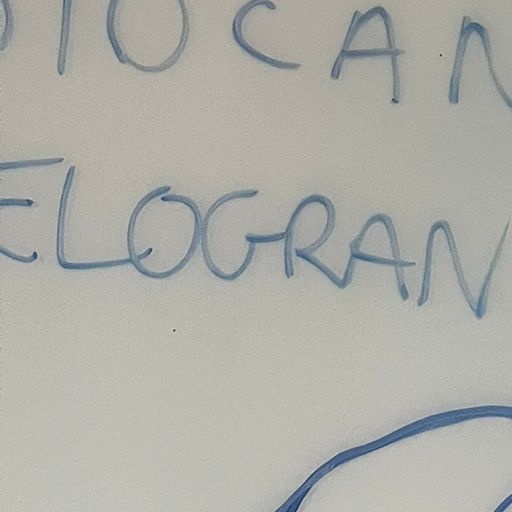 OIOCAN
ELOGRAN